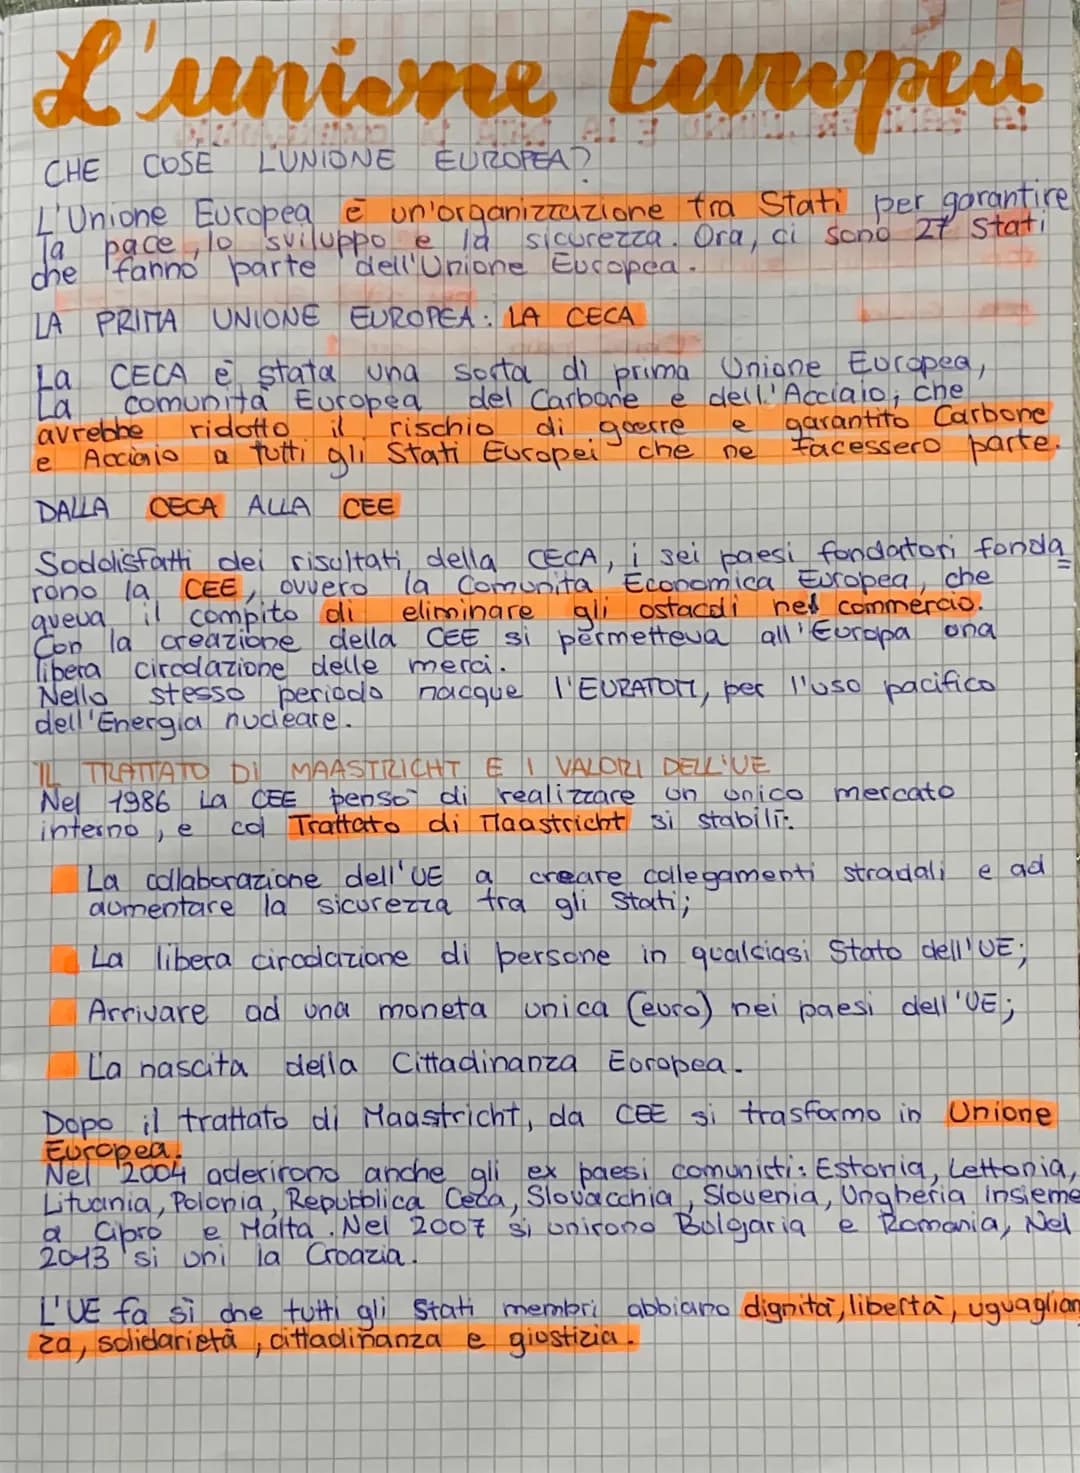 L'unione Europea
CHE COSE LUNIONE EUROPEA?
L'Unione Europea è un'organizzazione tra Stati per garantire
la pace, lo sviluppo e la sicurezza. Ora, ci sono 27 Stati
che fanno parte dell'Unione Europea.
LA PRIMA UNIONE EUROPEA: LA CECA
La CECA è stata una sorta di prima Unione Europea,
La comunità Europea del Carbone e dell'Acciaio, che
avrebbe ridotto il rischio di guerre e garantito Carbone
e Acciaio a tutti gli Stati Europei che ne facessero parte.
DALLA CECA ALLA CEE
Soddisfatti dei risultati della CECA, i sei paesi fondatori fonda=
rono la CEE, ovvero la Comunita Economica Europea, che
aveva il compito di eliminare gli ostacoli nel commercio.
Con la creazione della CEE si permetteva all'Europa una
libera circolazione delle merci.
Nello stesso periodo nacque l'EURATOM, per l'uso pacifico
dell'Energia nucleare.
IL TRATTATO DI MAASTRICHT E I VALORI DELL'UE
Nel 1986 La CEE pensò di realizzare un unico mercato
interno, e col Trattato di Maastricht si stabilì:
La collaborazione dell'UE a creare collegamenti stradali e ad
aumentare la sicurezza tra gli Stati;
La libera circolazione di persone in qualsiasi Stato dell'UE;
Arrivare ad una moneta unica (euro) nei paesi dell'UE;
La nascita della Cittadinanza Europea.
Dopo il trattato di Maastricht, da CEE si trasformo in Unione
Europea.
Nel 2004 aderirono anche gli ex paesi comunisti: Estonia, Lettonia,
Lituania, Polonia, Repubblica Ceca, Slovacchia, Slovenia, Ungheria insieme
a Cipro e Malta. Nel 2007 si unirono Bulgaria e Romania, Nel
2013 si uni la Croazia.
L'UE fa sì che tutti gli Stati membri abbiano dignità, libertà, uguaglian
za, solidarietà, cittadinanza e giustizia.